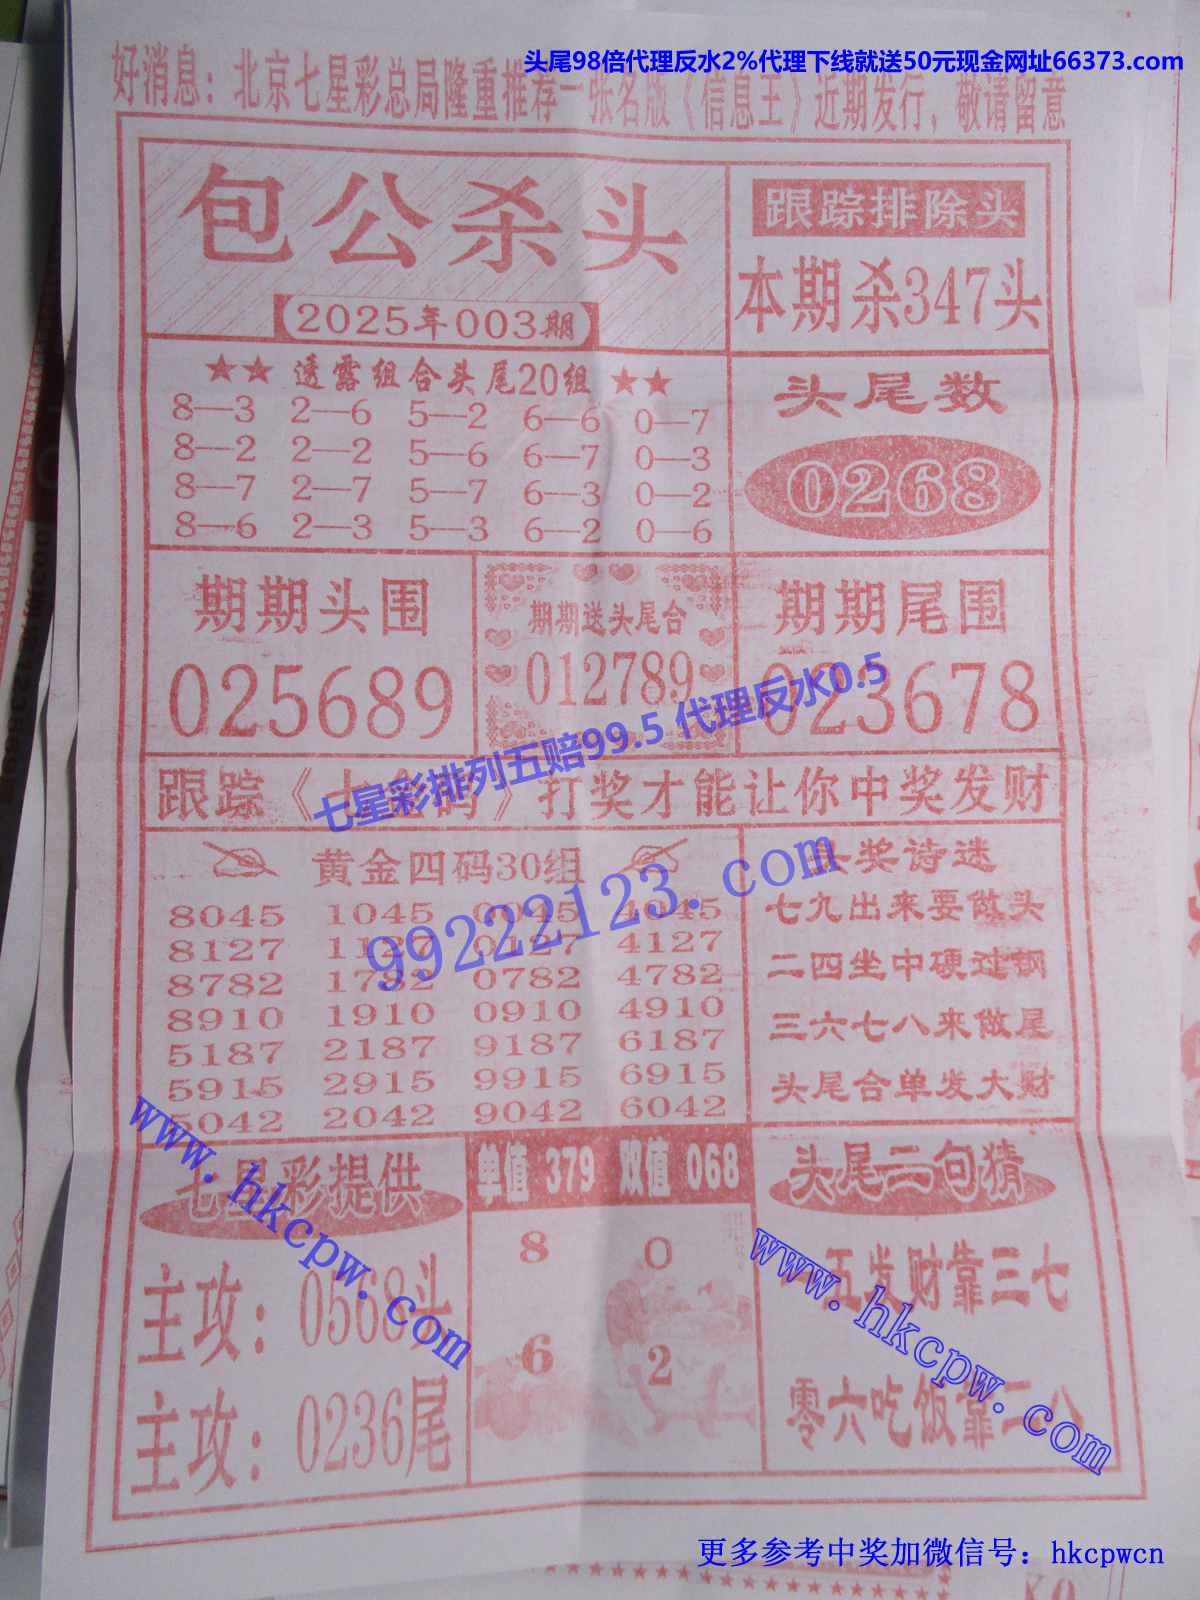 头尾98倍代理反水2%代理下线就送50元现金网址66373.com
好消息：北京七星彩总局隆重推荐一张名版《信息王》近期发行，敬请留意
包公杀头
2025年003期
跟踪排除头
本期杀347头
★★ 透露组合头尾20组 ★★
8—3 2—6 5—2 6—6 0—7
8—2 2—2 5—6 6—7 0—3
8—7 2—7 5—7 6—3 0—2
8—6 2—3 5—3 6—2 0—6
头尾数
0268
期期头围
025689
期期送头尾合
012789
期期尾围
023678
七星彩排列五赔99.5 代理反水0.5
跟踪《七金码》打奖才能让你中奖发财
黄金四码30组
8045 1045 0045 4045
8127 1127 0127 4127
8782 1782 0782 4782
8910 1910 0910 4910
5187 2187 9187 6187
5915 2915 9915 6915
5042 2042 9042 6042
99222123.com
头奖诗迷
七九出来要做头
二四坐中硬过钢
三六七八来做尾
头尾合单发大财
七星彩提供
主攻：0568头
主攻：0236尾
www.hkcpw.com
单值 379 双值 068
8 0
6 2
头尾二句猜
一五发财靠三七
零六吃饭靠二八
www.hkcpw.com
更多参考中奖加微信号：hkcpwcn